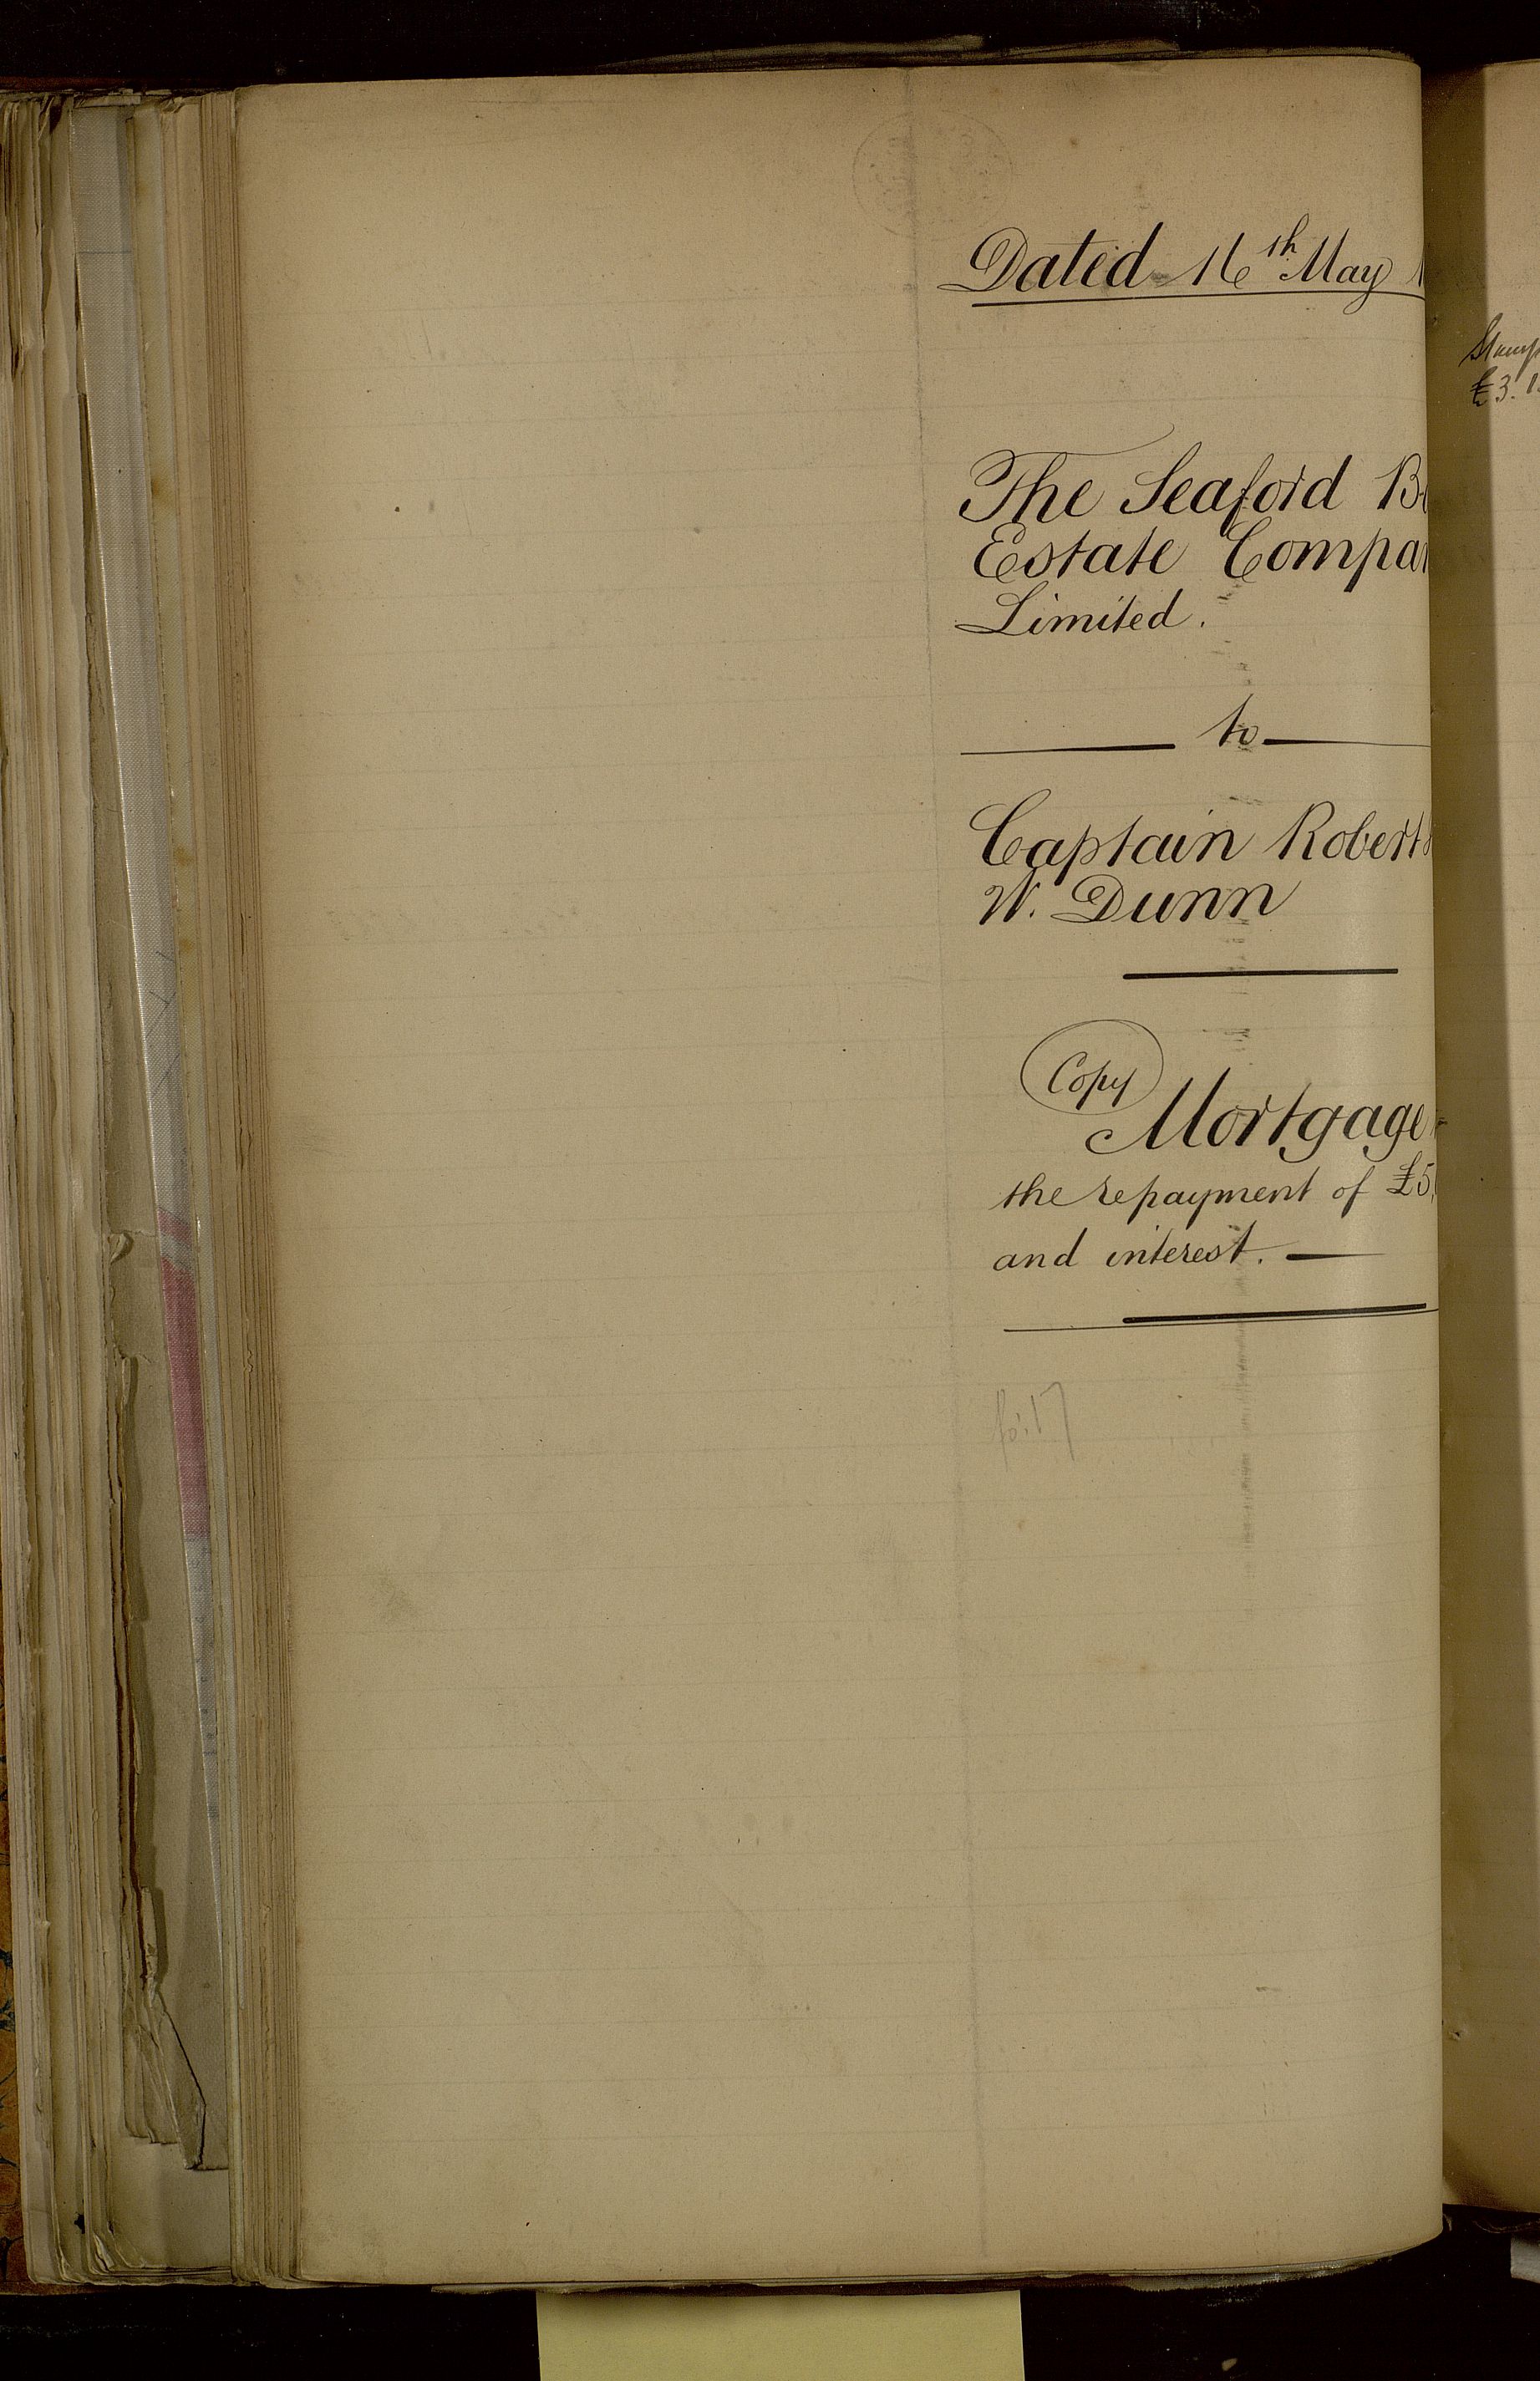 Dated 16th May
The Seaford
Estate
Limited.
to
Captain Robert
W. Dunn
Copy
Mortgage
the repayment of £5
and interest.
fo: 17
Stamp
£3.